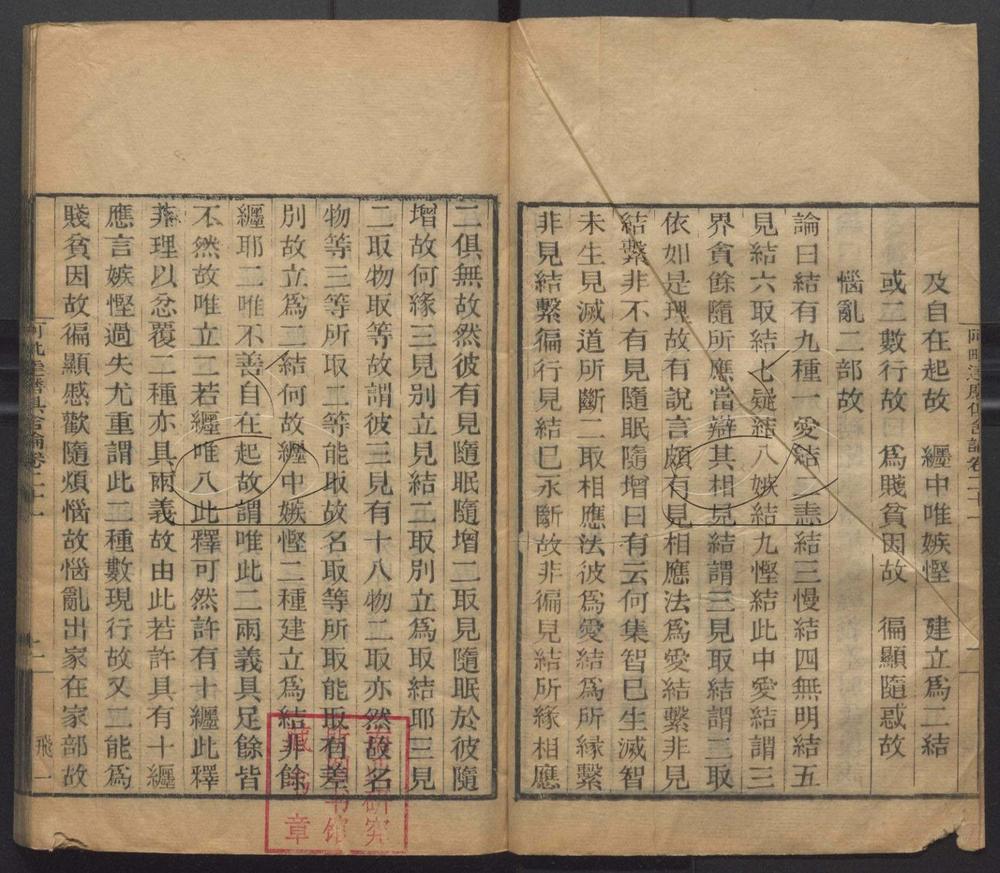 阿毗達磨俱舍論卷二十一
及自在起故　纏中唯嫉慳　建立為二結
或二數行故　為賤貧因故　徧顯隨惑故
惱亂二部故
論曰結有九種一愛結二恚結三慢結四無明結五
見結六取結七疑結八嫉結九慳結此中愛結謂三
界貪餘隨所應當辯其相見結謂三見取結謂二取
依如是理故有說言頗有見相應法為愛結繫非見
結繫非不有見隨眠隨增曰有云何集智已生滅智
未生見滅道所斷二取相應法彼為愛結為所緣繫
非見結繫徧行見結已永斷故非徧見結所緣相應
二俱無故然彼有見隨眠隨增二取見隨眠於彼隨
增故何緣三見別立見結二取別立為取結耶三見
二取物取等故謂彼三見有十八物二取亦然故名
物等三等所取二等能取故名取等所取能取有差
別故立為二結何故纏中嫉慳二種建立為結非餘
纏耶二唯不善自在起故謂唯此二兩義具足餘皆
不然故唯立二若纏唯八此釋可然許有十纏此釋
非理以忿覆二種亦具兩義故由此若許具有十纏
應言嫉慳過失尤重謂此二種數現行故又二能為
賤貧因故徧顯慼歡隨煩惱故惱亂出家在家部故
阿毗達磨俱舍論卷二十一
二
飛一